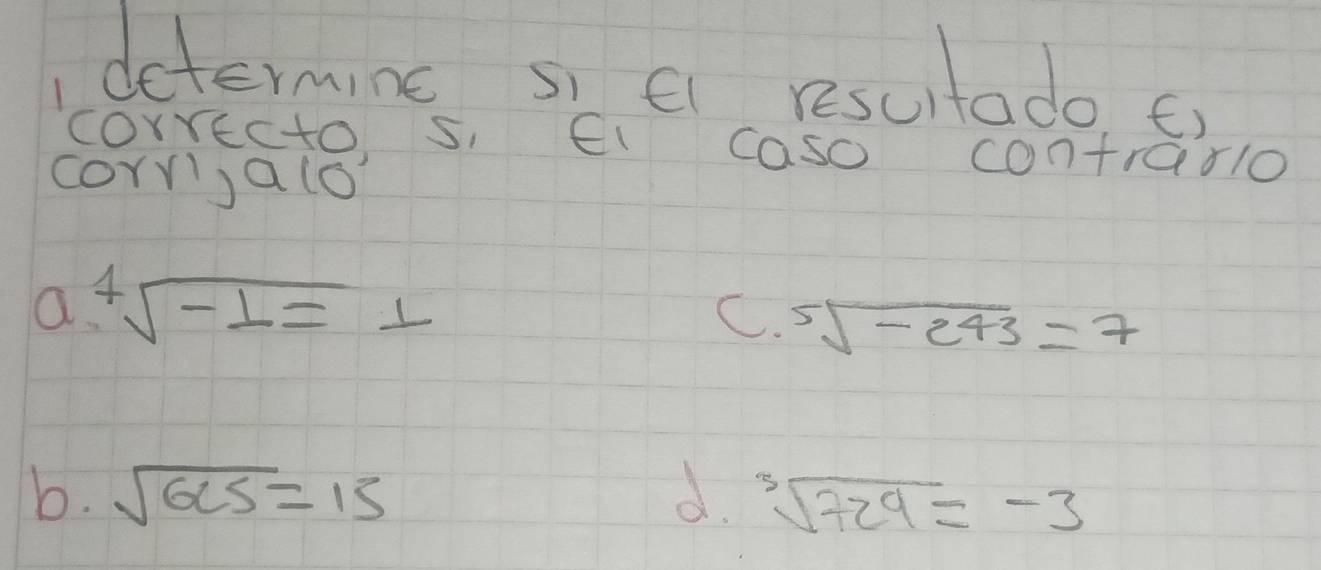 1 determine si el resultado es
correcto, si el caso contrario
corrijalo
a. ⁴√-1 = 1
c. ⁵√-243 = 7
b. √625 = 15
d. ³√729 = -3